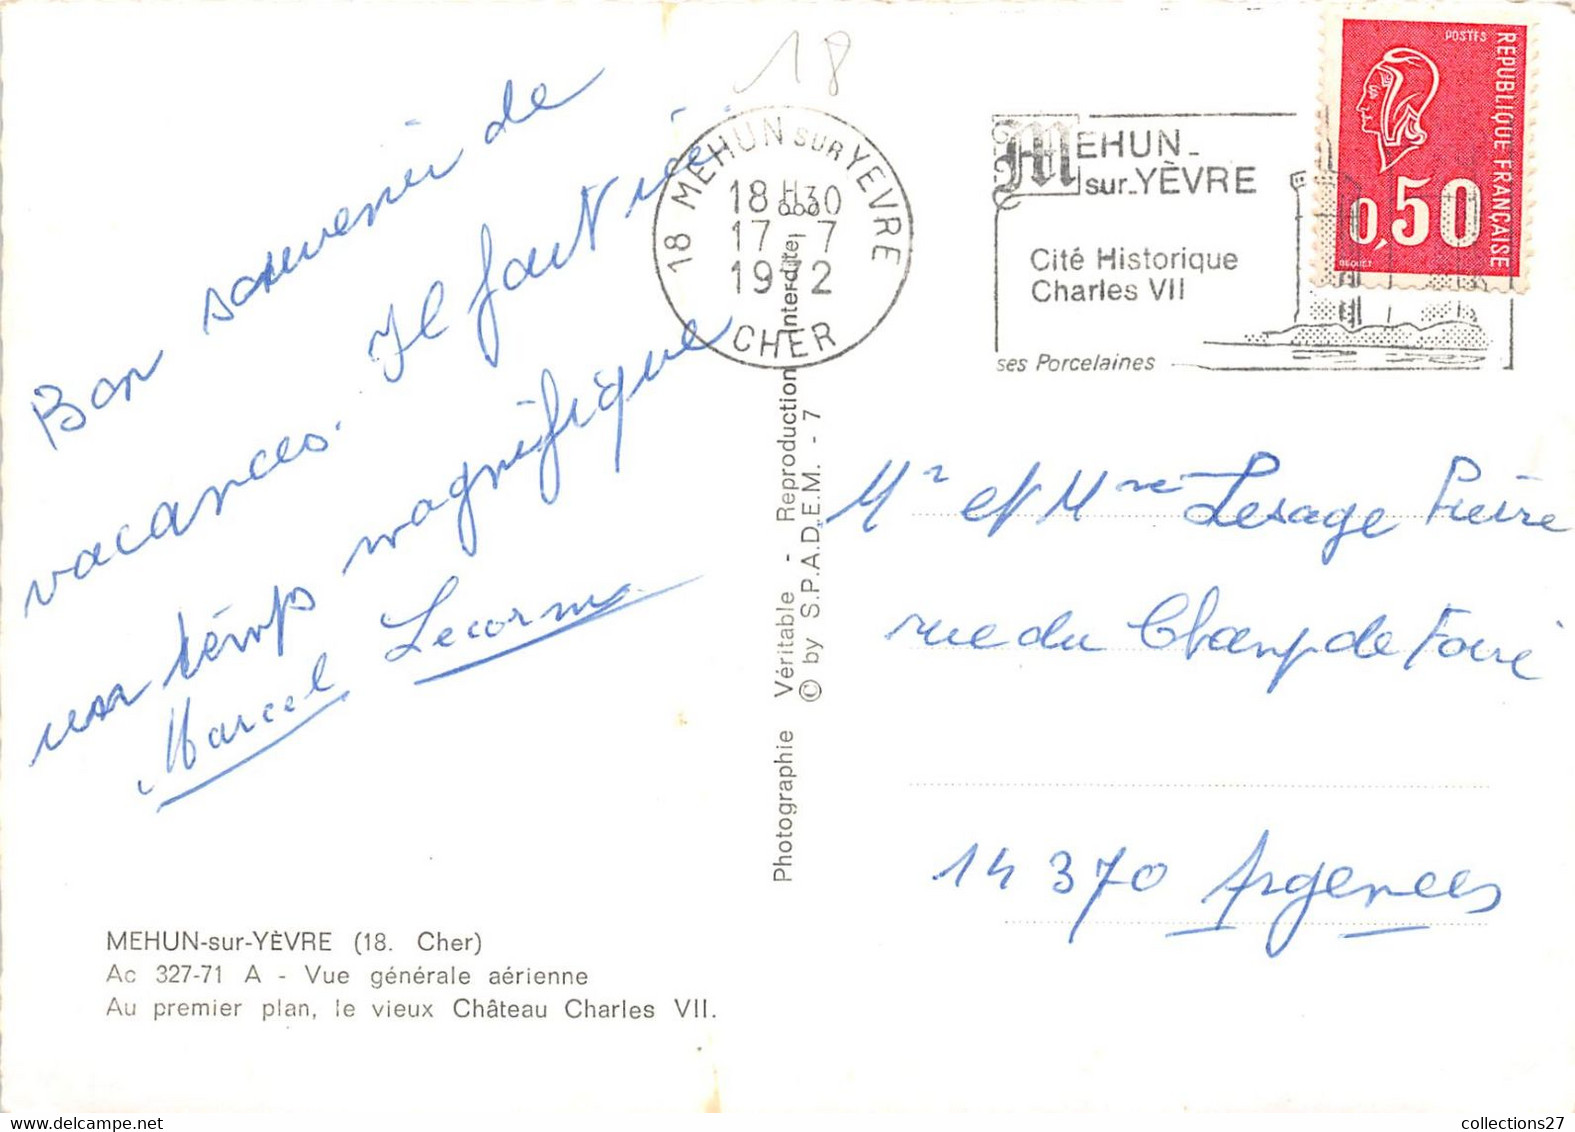 18
Bon souvenir de
vacances. Il fait ici
un temps magnifique
Marcel Lecorne
MEHUN-sur-YÈVRE (18. Cher)
Ac 327-71 A - Vue générale aérienne
Au premier plan, le vieux Château Charles VII.
Photographie Véritable - Reproduction Interdite
© by S.P.A.D.E.M. - 7
18 MEHUN SUR YEVRE
18 H30
17 - 7
1972
CHER
MEHUN-
sur-YÈVRE
Cité Historique
Charles VII
ses Porcelaines
POSTES
REPUBLIQUE FRANÇAISE
0,50
BEQUET
Mr et Mme Lesage Pierre
rue du Champ de Foire
14 370 Argences
collections27